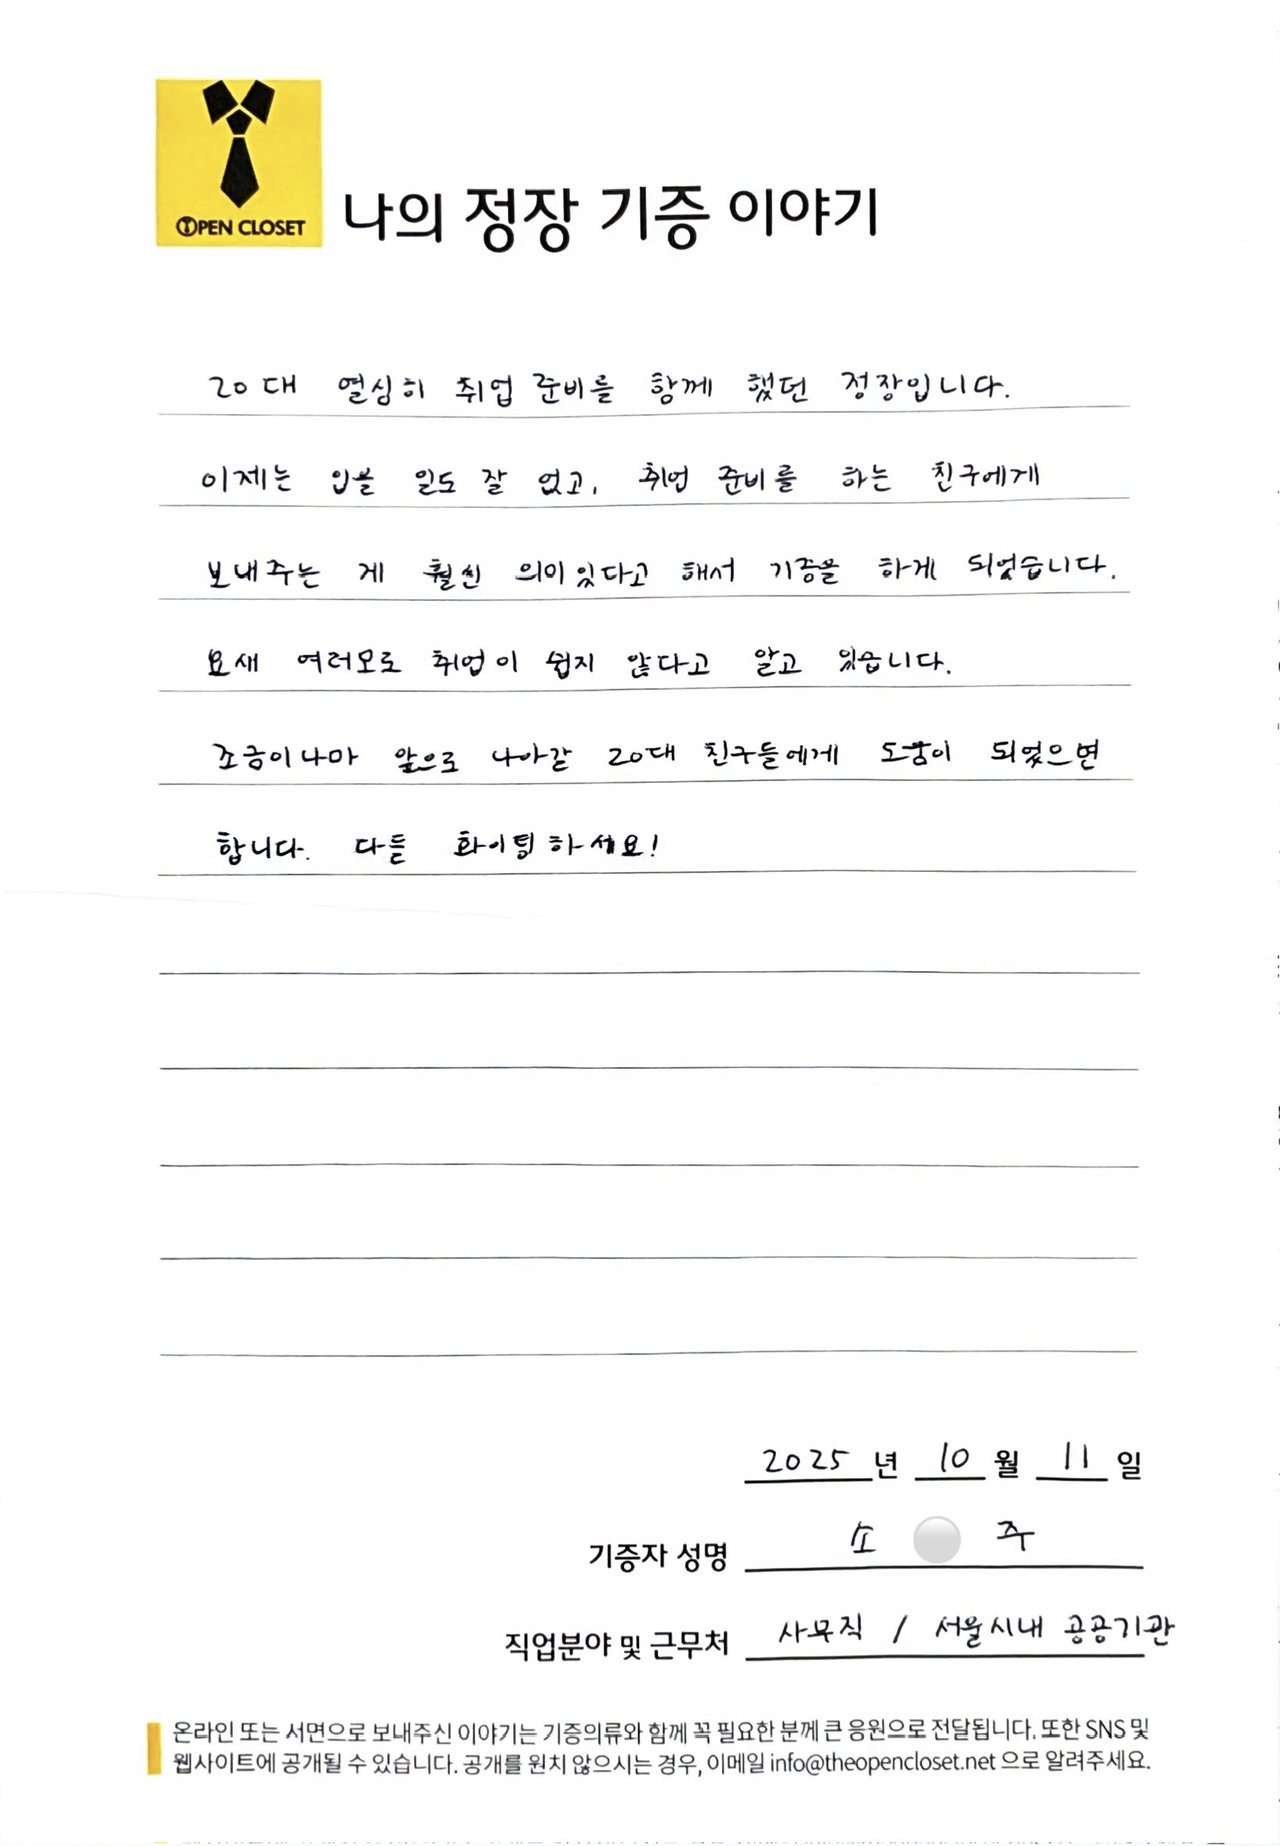 OPEN CLOSET
나의 정장 기증 이야기
20대 열심히 취업 준비를 함께 했던 정장입니다.
이제는 입을 일도 잘 없고, 취업 준비를 하는 친구에게
보내주는 게 훨씬 의미있다고 해서 기증을 하게 되었습니다.
요새 여러모로 취업이 쉽지 않다고 알고 있습니다.
조금이나마 앞으로 나아갈 20대 친구들에게 도움이 되었으면
합니다. 다들 화이팅하세요!
2025 년 10 월 11 일
기증자 성명 소 주
직업분야 및 근무처 사무직 / 서울시내 공공기관
온라인 또는 서면으로 보내주신 이야기는 기증의류와 함께 꼭 필요한 분께 큰 응원으로 전달됩니다. 또한 SNS 및
웹사이트에 공개될 수 있습니다. 공개를 원치 않으시는 경우, 이메일 info@theopencloset.net 으로 알려주세요.